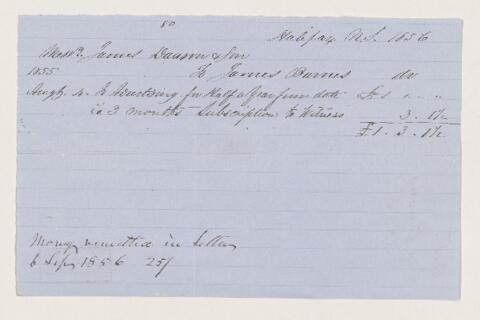 80
Halifax N.S. 1856
Messrs. James Dawson & Son
1855 To James Barnes dr
Augt. 4. To Advertising for Half a Year from date £1 " "
" 3 months Subscription to Witness 3. 1½
£1. 3. 1½
Money remitted in letter
6 Sep 1856 25/